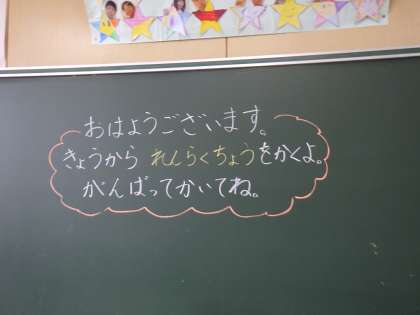 おはようございます。
きょうから れんらくちょうをかくよ。
がんばってかいてね。